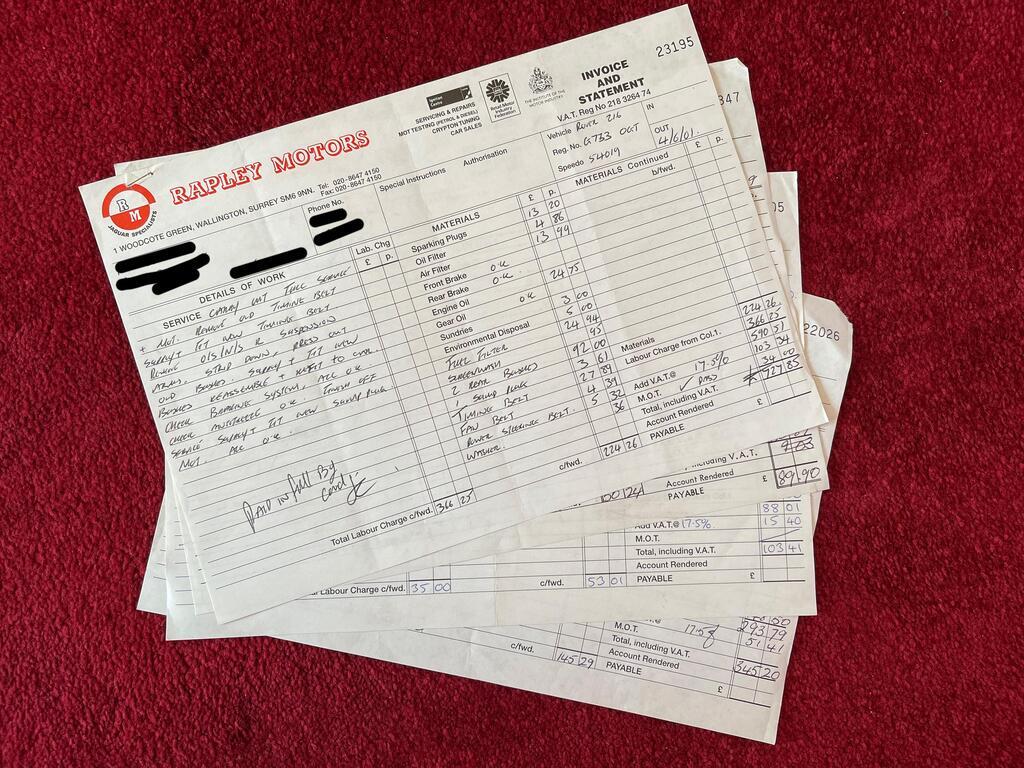 23195
INVOICE
AND
STATEMENT
V.A.T. Reg No 218 3264 74
SERVICING & REPAIRS
MOT TESTING (PETROL & DIESEL)
CRYPTON TUNING
CAR SALES
Retail Motor
Industry
Federation
THE INSTITUTE OF THE
MOTOR INDUSTRY
RM
JAGUAR SPECIALISTS
RAPLEY MOTORS
1 WOODCOTE GREEN, WALLINGTON, SURREY SM6 9NN. Tel: 020-8647 4150
Fax: 020-8647 4150
Phone No.
Special Instructions
Authorisation
Vehicle ROVER 216
IN
Reg. No. G733 OGT
OUT
Speedo 54019
4/6/01.
DETAILS OF WORK
Lab. Chg
£ p.
MATERIALS £ p.
MATERIALS Continued £ p.
b/fwd.
SERVICE CARRY OUT FULL SERVICE
+ MOT. REMOVE OLD TIMING BELT
SUPPLY + FIT NEW TIMING BELT
REMOVE O/S/N/S R SUSPENSION
ARMS, STRIP DOWN, PRESS OUT
OLD BUSHES. SUPPLY + FIT NEW
BUSHES REASSEMBLE + REFIT TO CAR.
CHECK BRAKING SYSTEM, ALL OK
CHECK ANTIFREEZE OK FINISH OFF
SERVICE SUPPLY + FIT NEW SUMP PLUG
MOT. ALL O.K.
Paid in full By
card
Total Labour Charge c/fwd. 366 25
Sparking Plugs 13 20
Oil Filter 4 86
Air Filter 13 99
Front Brake O.K
Rear Brake O.K
Engine Oil 24 75
Gear Oil O.K
Sundries 3 00
Environmental Disposal 5 00
FUEL FILTER 24 94
SCREENWASH 95
2 REAR BUSHES 92 00
1 SUMP PLUG 3 61
TIMING BELT 27 89
FAN BELT 4 39
POWER STEERING BELT. 5 32
WASHER. 36
c/fwd. 224 26
Materials 224 26
Labour Charge from Col.1. 366 25
590 51
Add V.A.T.@ 17.5% 103 34
M.O.T. ✓ PASS 34 00
Total, including V.A.T. £ 727.85
Account Rendered
PAYABLE £
347
05
22026
including V.A.T.
Account Rendered
PAYABLE £ 89 90
88 01
Add V.A.T.@ 17.5% 15 40
M.O.T.
Total, including V.A.T. 103 41
Account Rendered
Labour Charge c/fwd. 35 00
c/fwd. 53 01
PAYABLE £
293 79
17.5% 51 41
M.O.T.
Total, including V.A.T.
Account Rendered 345 20
c/fwd. 145 29
PAYABLE
£